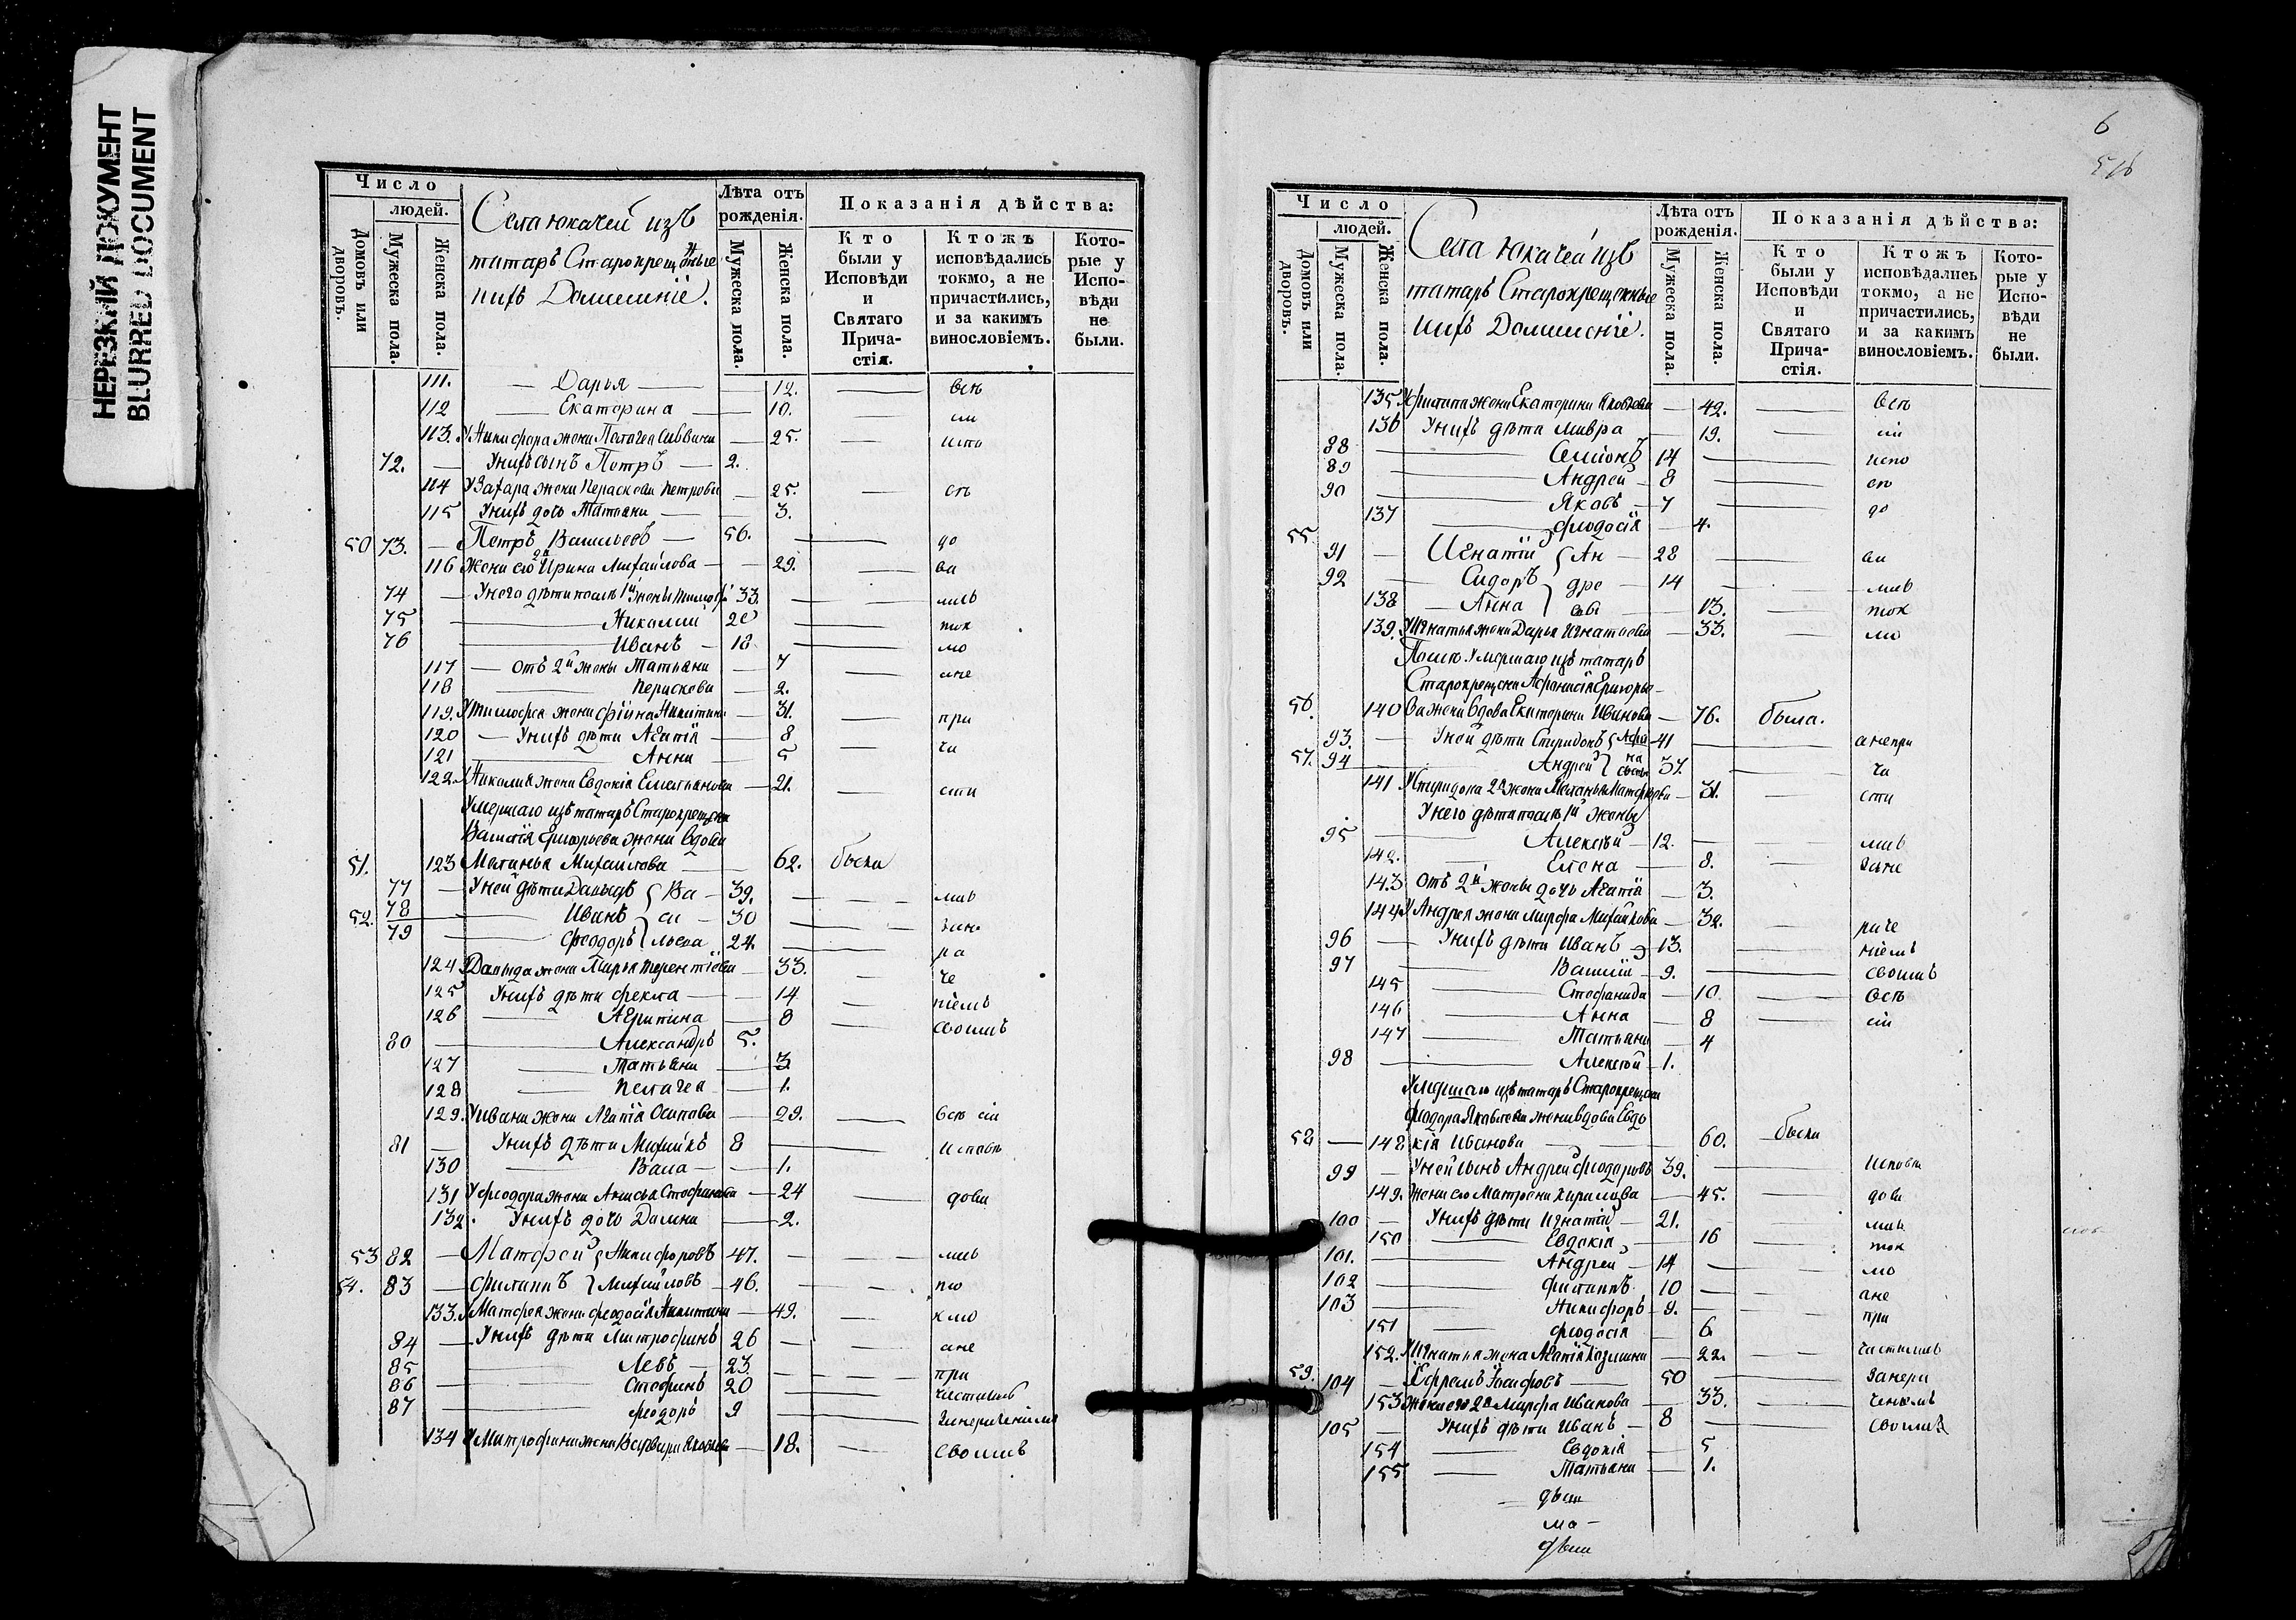 НЕРЕЗКИЙ ДОКУМЕНТ
BLURRED DOCUMENT
Число
людей.
Домовъ или дворовъ.
Мужеска пола.
Женска пола.
Села Юкачей изъ
татаръ Старокрещенные
ихъ Домашніе.
Лѣта отъ рожденія.
Мужеска пола.
Женска пола.
Показанія дѣйства:
Кто были у Исповѣди и Святаго Прича-стія.
Ктожъ исповѣдались токмо, а не причастились, и за какимъ винословіемъ.
Кото-рые у Испо-вѣди не были.
111. Дарья 12. всѣ
112 Екатерина 10. сіи
113. У Никифора жена Пелагея Саввина 25. испо
72. У нихъ сынъ Петръ 2.
114 У Захара жена Параскева Петрова 25. вѣ
115 У нихъ дочь Татьяна 3.
50 73. Петръ Васильевъ 56. до
116 Жена его 2я Ирина Михайлова 29. ва
74 У него дѣти отъ 1й жены Тимофей 33. лись
75 Николай 20 ток
76 Иванъ 18 мо
117 отъ 2й жены Татьяна 7 а не
118 Параскева 2.
119. У Тимофея жена Никитина 31. при
120 У нихъ дѣти Агапія 8 ча
121 Анна 5
122. У Николая жена Евдокія Емельянова 21. сти
Умершаго изъ татаръ Старокрещена
Василія Григорьева жена вдова
51. 123 Меланья Михайлова 62. была
77 У ней дѣти Давыдъ Ва 39. лись
52. 78 Иванъ си 30 зане
79 Феодоръ льева 24. ра
124 У Давыда жена Марья Терентіева 33. че
125 У нихъ дѣти Фекла 14 ніемъ
126 Агрипина 8 своимъ
80 Александръ 5.
127 Татьяна 3
128 Пелагея 1.
129. У Ивана жена Агапія Осипова 29. всѣ сіи
81 У нихъ дѣти Михайлъ 8 исповѣ
130 Васа 1.
131 У Феодора жена Анисья Стефанова 24 дова
132. У нихъ дочь Домна 2.
53 82 Матфей Никифоровъ 47. лись
54. 83 Филиппъ Михайловъ 46. то
133. У Матфея жена Феодосія Никитина 49. кмо
84 У нихъ дѣти Митрофанъ 26 а не
85 Левъ 23 при
86 Стефанъ 20 частились
87 Феодоръ 9
134 У Митрофана жена Варвара Яковлева 18. своимъ
6
Число
людей.
Домовъ или дворовъ.
Мужеска пола.
Женска пола.
Села Юкачей изъ
татаръ Старокрещенные
ихъ Домашніе.
Лѣта отъ рожденія.
Мужеска пола.
Женска пола.
Показанія дѣйства:
Кто были у Исповѣди и Святаго Прича-стія.
Ктожъ исповѣдались токмо, а не причастились, и за какимъ винословіемъ.
Кото-рые у Испо-вѣди не были.
135 У Филипа жена Екатерина Яковлева 42. всѣ
136 У нихъ дѣти Мавра 19. сіи
88 Семіонъ 14 испо
89 Андрей 8 вѣ
90 Яковъ 7 до
137 Феодосія 4.
55. 91 Игнатій Ан 28 ва
92 Сидоръ дре 14 лись
138 Анна евы 13. ток
139. У Игнатья жена Дарья Игнатьева 33. мо
Послѣ умершаго изъ татаръ
Старокрещена Афанасія Григорье-
56. 140 ва жена вдова Екатерина Иванова 76. была.
93. У ней дѣти Спиридонъ Афа 41 а не при
57. 94 Андрей на сьевы 37. ча
141 У Спиридона 2я жена Меланья Матфеева 31. сти
У него дѣти отъ 1й жены
95 Алексѣй 12. лись
142. Елена 8. зане
143 отъ 2й жены дочь Агапія 3.
144 У Андрея жена Марфа Михайлова 32. раче
96 У нихъ дѣти Иванъ 13. ніемъ
97 Василій 9. своимъ
145 Стефанида 10. всѣ
146 Анна 8 сіи
147 Татьяна 4
98 Алексѣй 1.
Умершаго изъ татаръ Старокрещена
Феодора Яковлева жена вдова Евдо
58 148 кія Иванова 60. была
99 У ней сынъ Андрей Феодоровъ 39. исповѣ
149. Жена его Матрена Кирилова 45. дова
100 У нихъ дѣти Игнатій 21. лись
150 Евдокія 16 ток
101. Андрей 14 мо
102 Филиппъ 10 а не
103 Никифоръ 9. при
151 Феодосія 6.
152. У Игнатья жена Агапія Козмина 22. частились
59. 104 Ефремъ Іосифовъ 50 занера
153 Жена его 2я Марфа Иванова 33. ченіемъ
105 У нихъ дѣти Иванъ 8 своимъ
154 Евдокія 5
155 Татьяна 1.